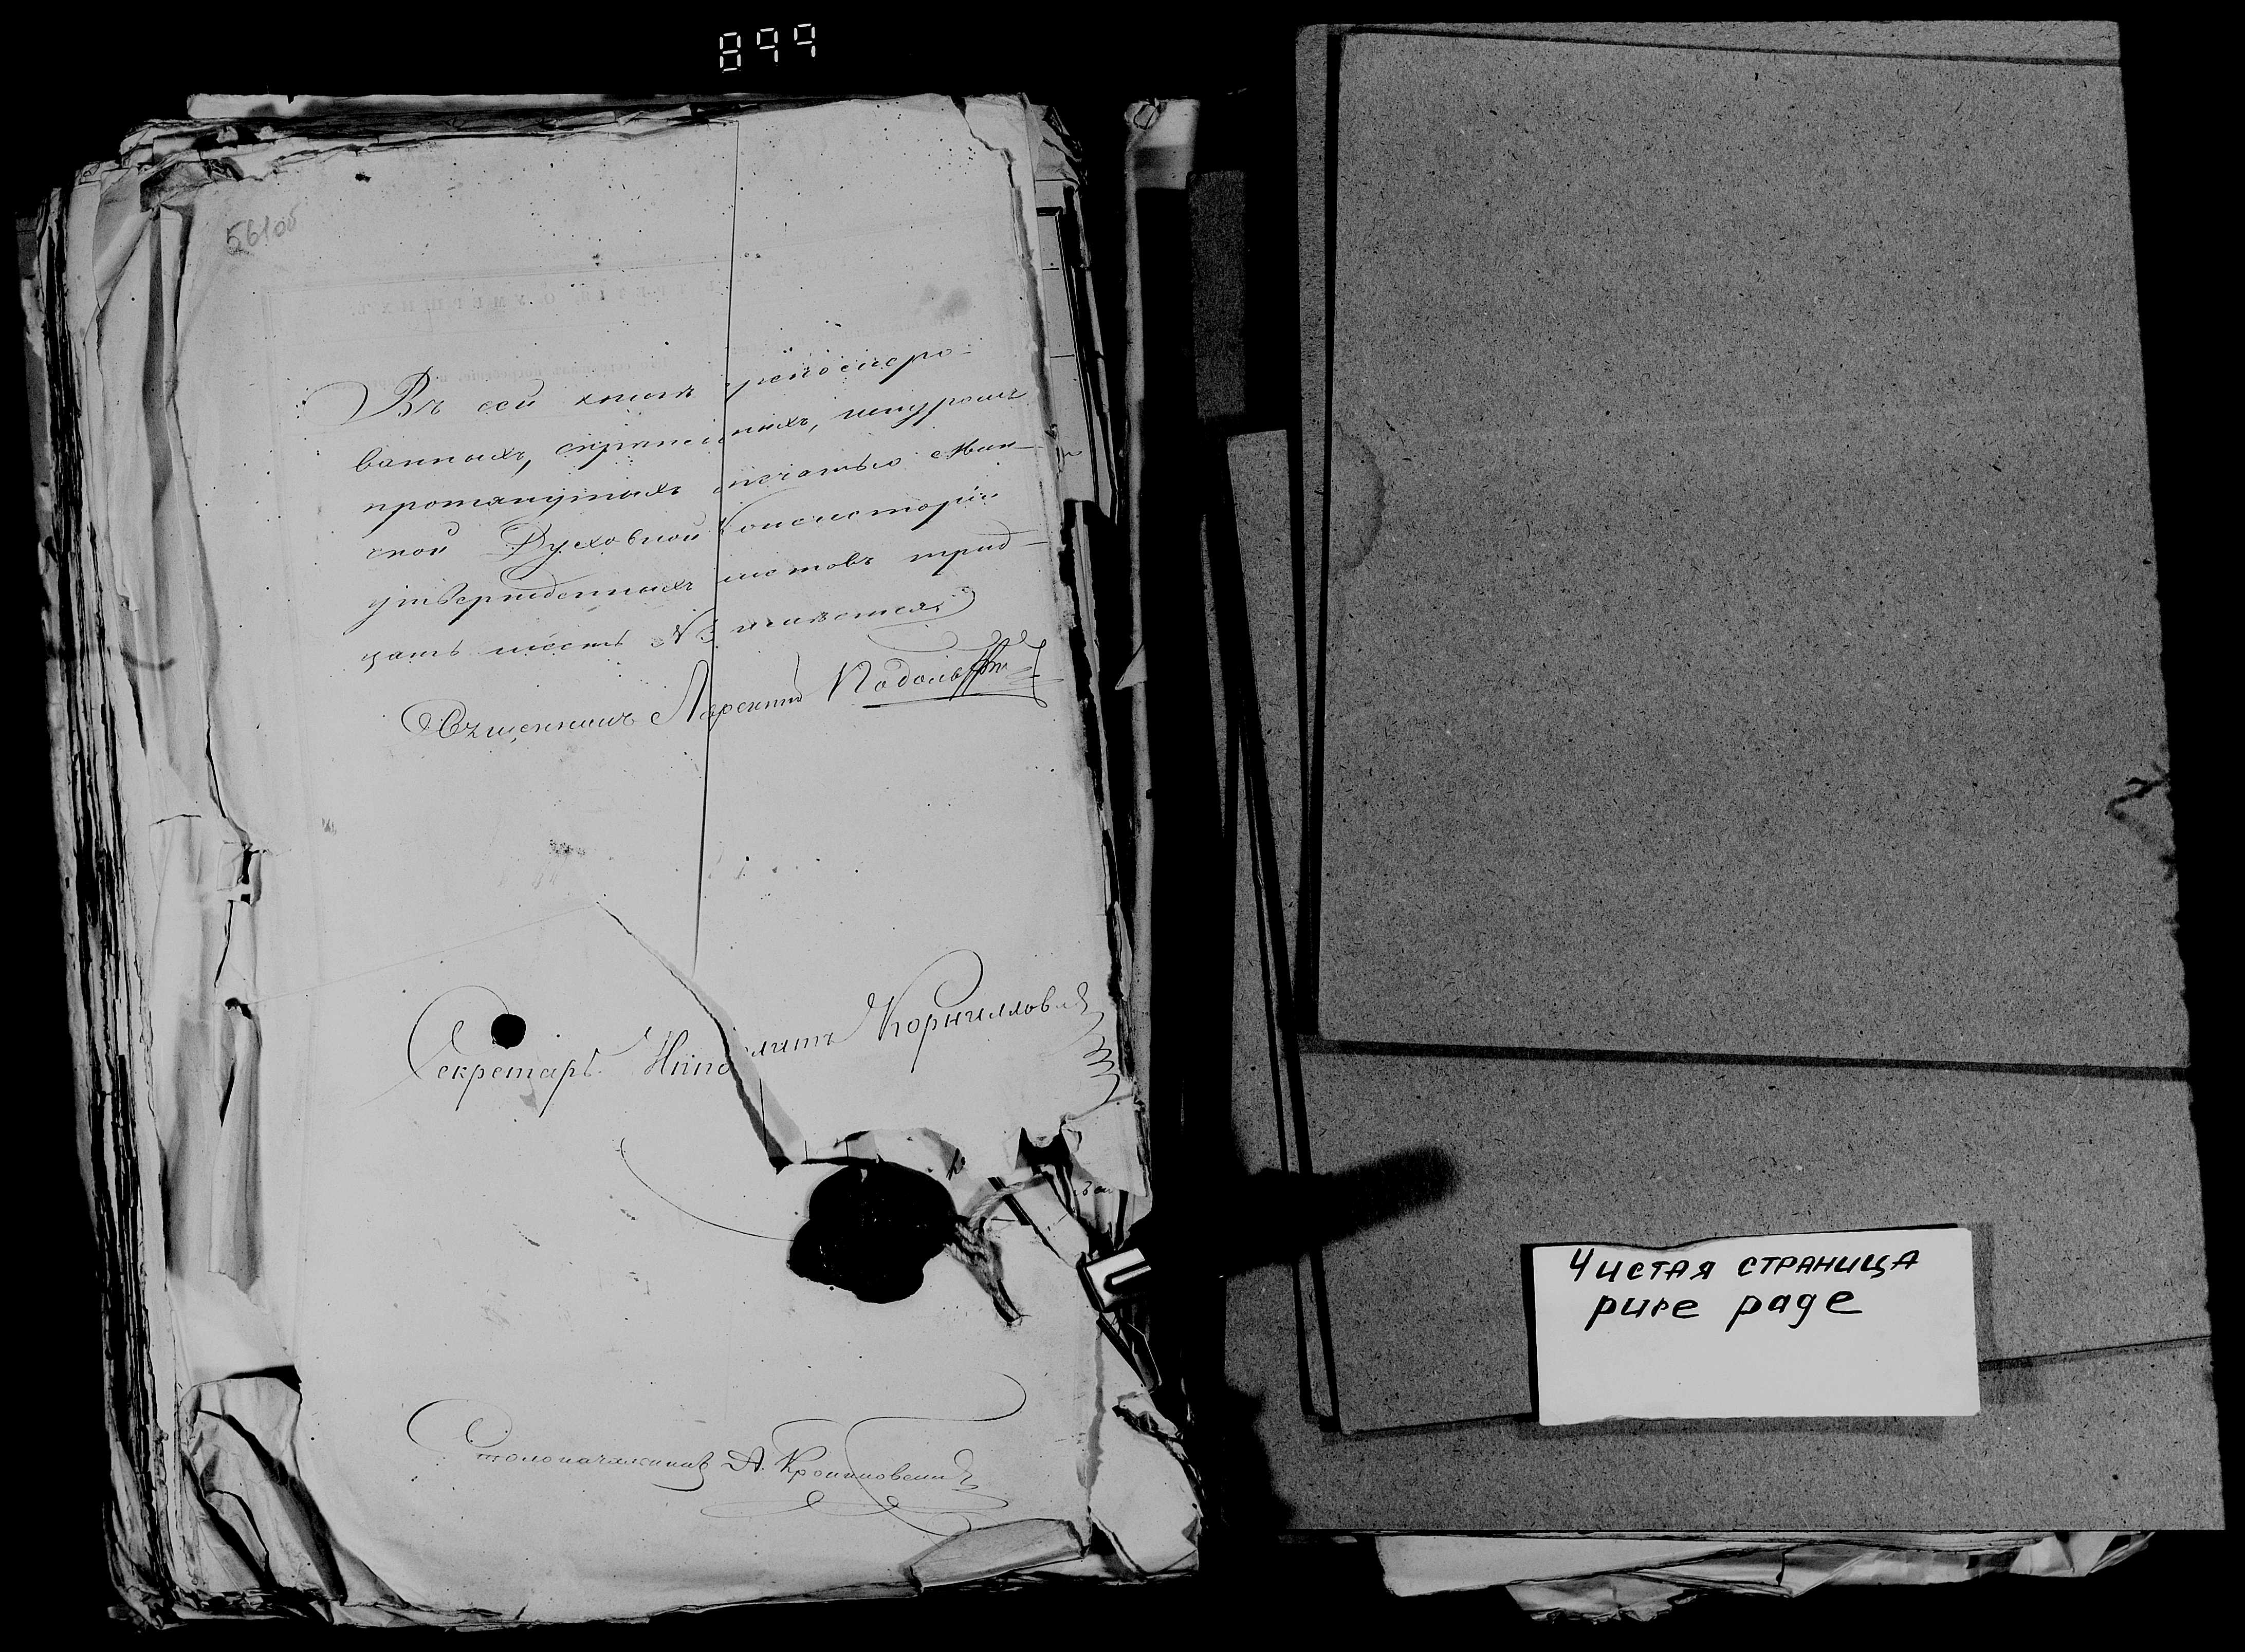 899
561об
Въ сей книгѣ греносмеро-
ванныхъ, скрѣпленныхъ, шнуромъ
протянутыхъ печатью Мин-
ской Духовной Консисторіи
утвержденныхъ листовъ трид-
цать шесть № имѣется
Священникъ Подольскій
Секретарь Ипполитъ Корнилловъ
Столоначальникъ А.
Чистая страница
pure page